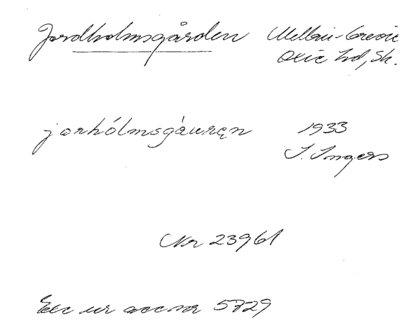 Jordholmsgården Mellan-Grevie
Oxie hd, Sk.
jorhólmsgáuręn 1933
I. Ingers
Nr 23961
Exc ur accnr 5729